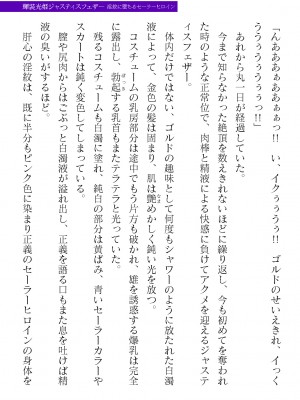 輝装光姫ジャスティスフェザー 淫紋に堕ちるセーラーヒロイン
「んあああぁぁぁっ!! い、イクぅぅぅ!! ゴルドのせいえきれ、イっく
うううぅぅぅぅっっ!!」
あれから丸一日が経過していた。
今まで知らなかった絶頂を数えきれないほどに繰り返し、今も初めてを奪われ
た時のような正常位で、肉棒と精液による快感に負けてアクメを迎えるジャステ
ィスフェザー。
体内だけではない、ゴルドの趣味として何度もシャワーのように放たれた白濁
液によって、金色の髪は固まり、肌は艶めかしく鈍い光を放つ。
コスチュームの乳房部分は途中でもう片方も破かれ、雄を誘惑する爆乳は完全
に露出し、勃起する乳首もまたテラテラと光っていた。
残るコスチュームも白濁に塗れ、純白の部分は黄ばみ、青いセーラーカラーや
スカートは鈍く変色してしまっている。
膣や尻肉からはごぷっと白濁液が溢れ出し、正義を語る口もまた息を吐けば精
液の臭いがするほど。
肝心の淫紋は、既に半分もピンク色に染まり正義のセーラーヒロインの身体を